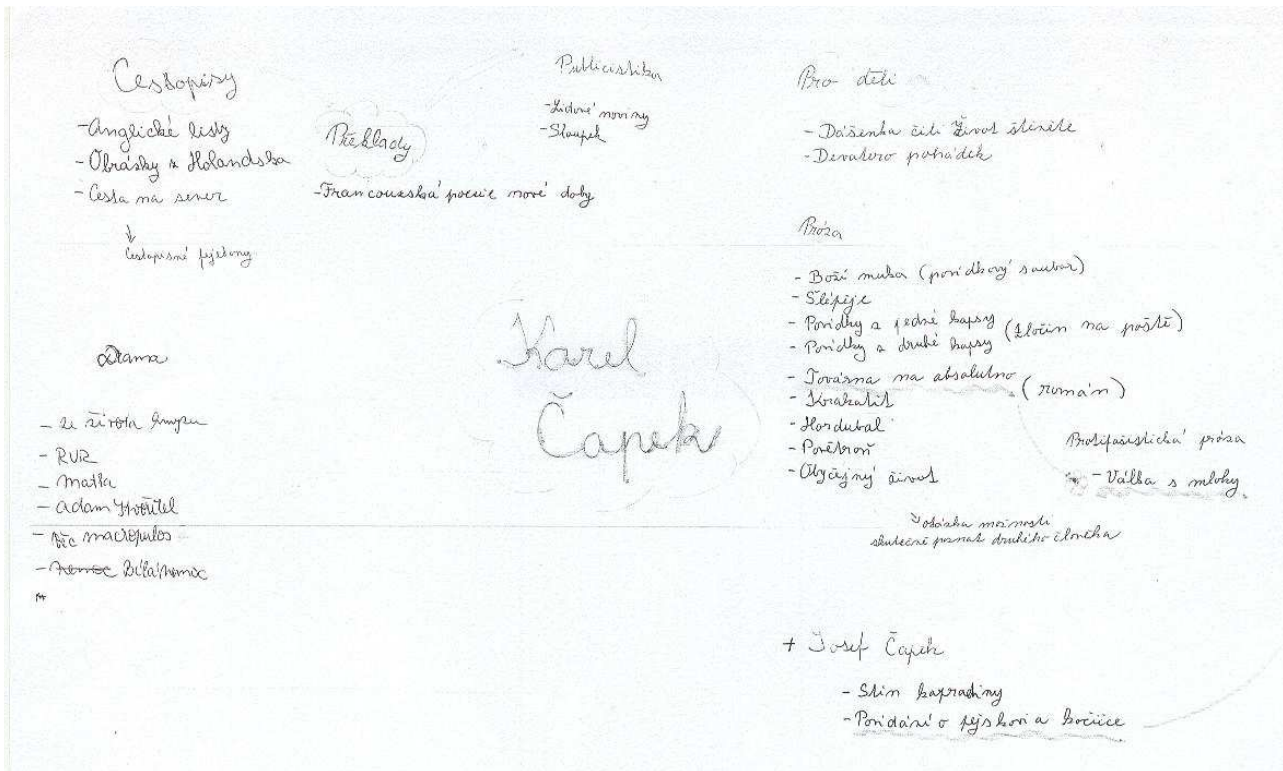 Cestopisy
- Anglické listy
- Obrázky z Holandska
- Cesta na sever
cestopisné fejetony
Překlady
- Francouzská poesie nové doby
Publicistika
- Lidové noviny
- Sloupek
Pro děti
- Dášenka čili Život štěněte
- Devatero pohádek
Próza
- Boží muka (povídkový soubor)
- Šlépěje
- Povídky z jedné kapsy
- Povídky z druhé kapsy (Zločin na poště)
- Továrna na absolutno
- Krakatit (román)
- Hordubal
- Povětroň
- Obyčejný život
otázka možnosti
skutečně poznat druhého člověka
Protifašistická próza
- Válka s mloky
Karel
Čapek
drama
- Ze života hmyzu
- RUR
- Matka
- Adam stvořitel
- Věc macropulos
- Bílá nemoc
+ Josef Čapek
- Stín kapradiny
- Povídání o pejskovi a kočičce